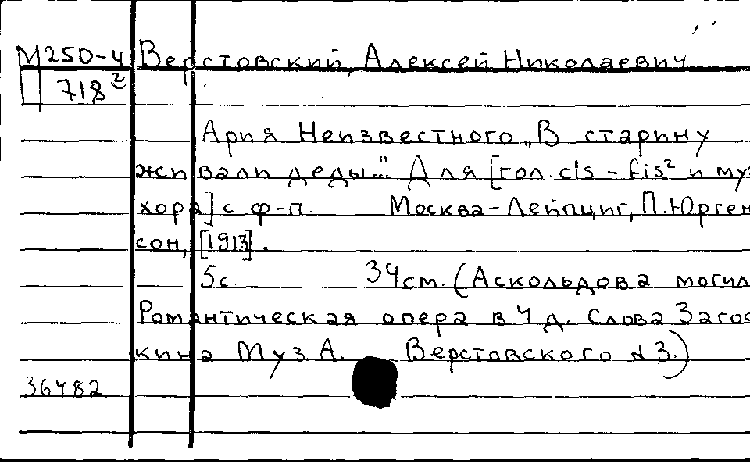 М250-4 Верстовский, Алексей Николаевич
718²
Ария Неизвестного „В старину
живали деды". Для [гол. cis - fis² и муз
хора] с ф-п. Москва-Лейпциг, П. Юрген
сон, [1913].
5с 34см. (Аскольдова могил
Романтическая опера в 4 д. Слова Загос
кина Муз А. Верстовского №3.)
36482